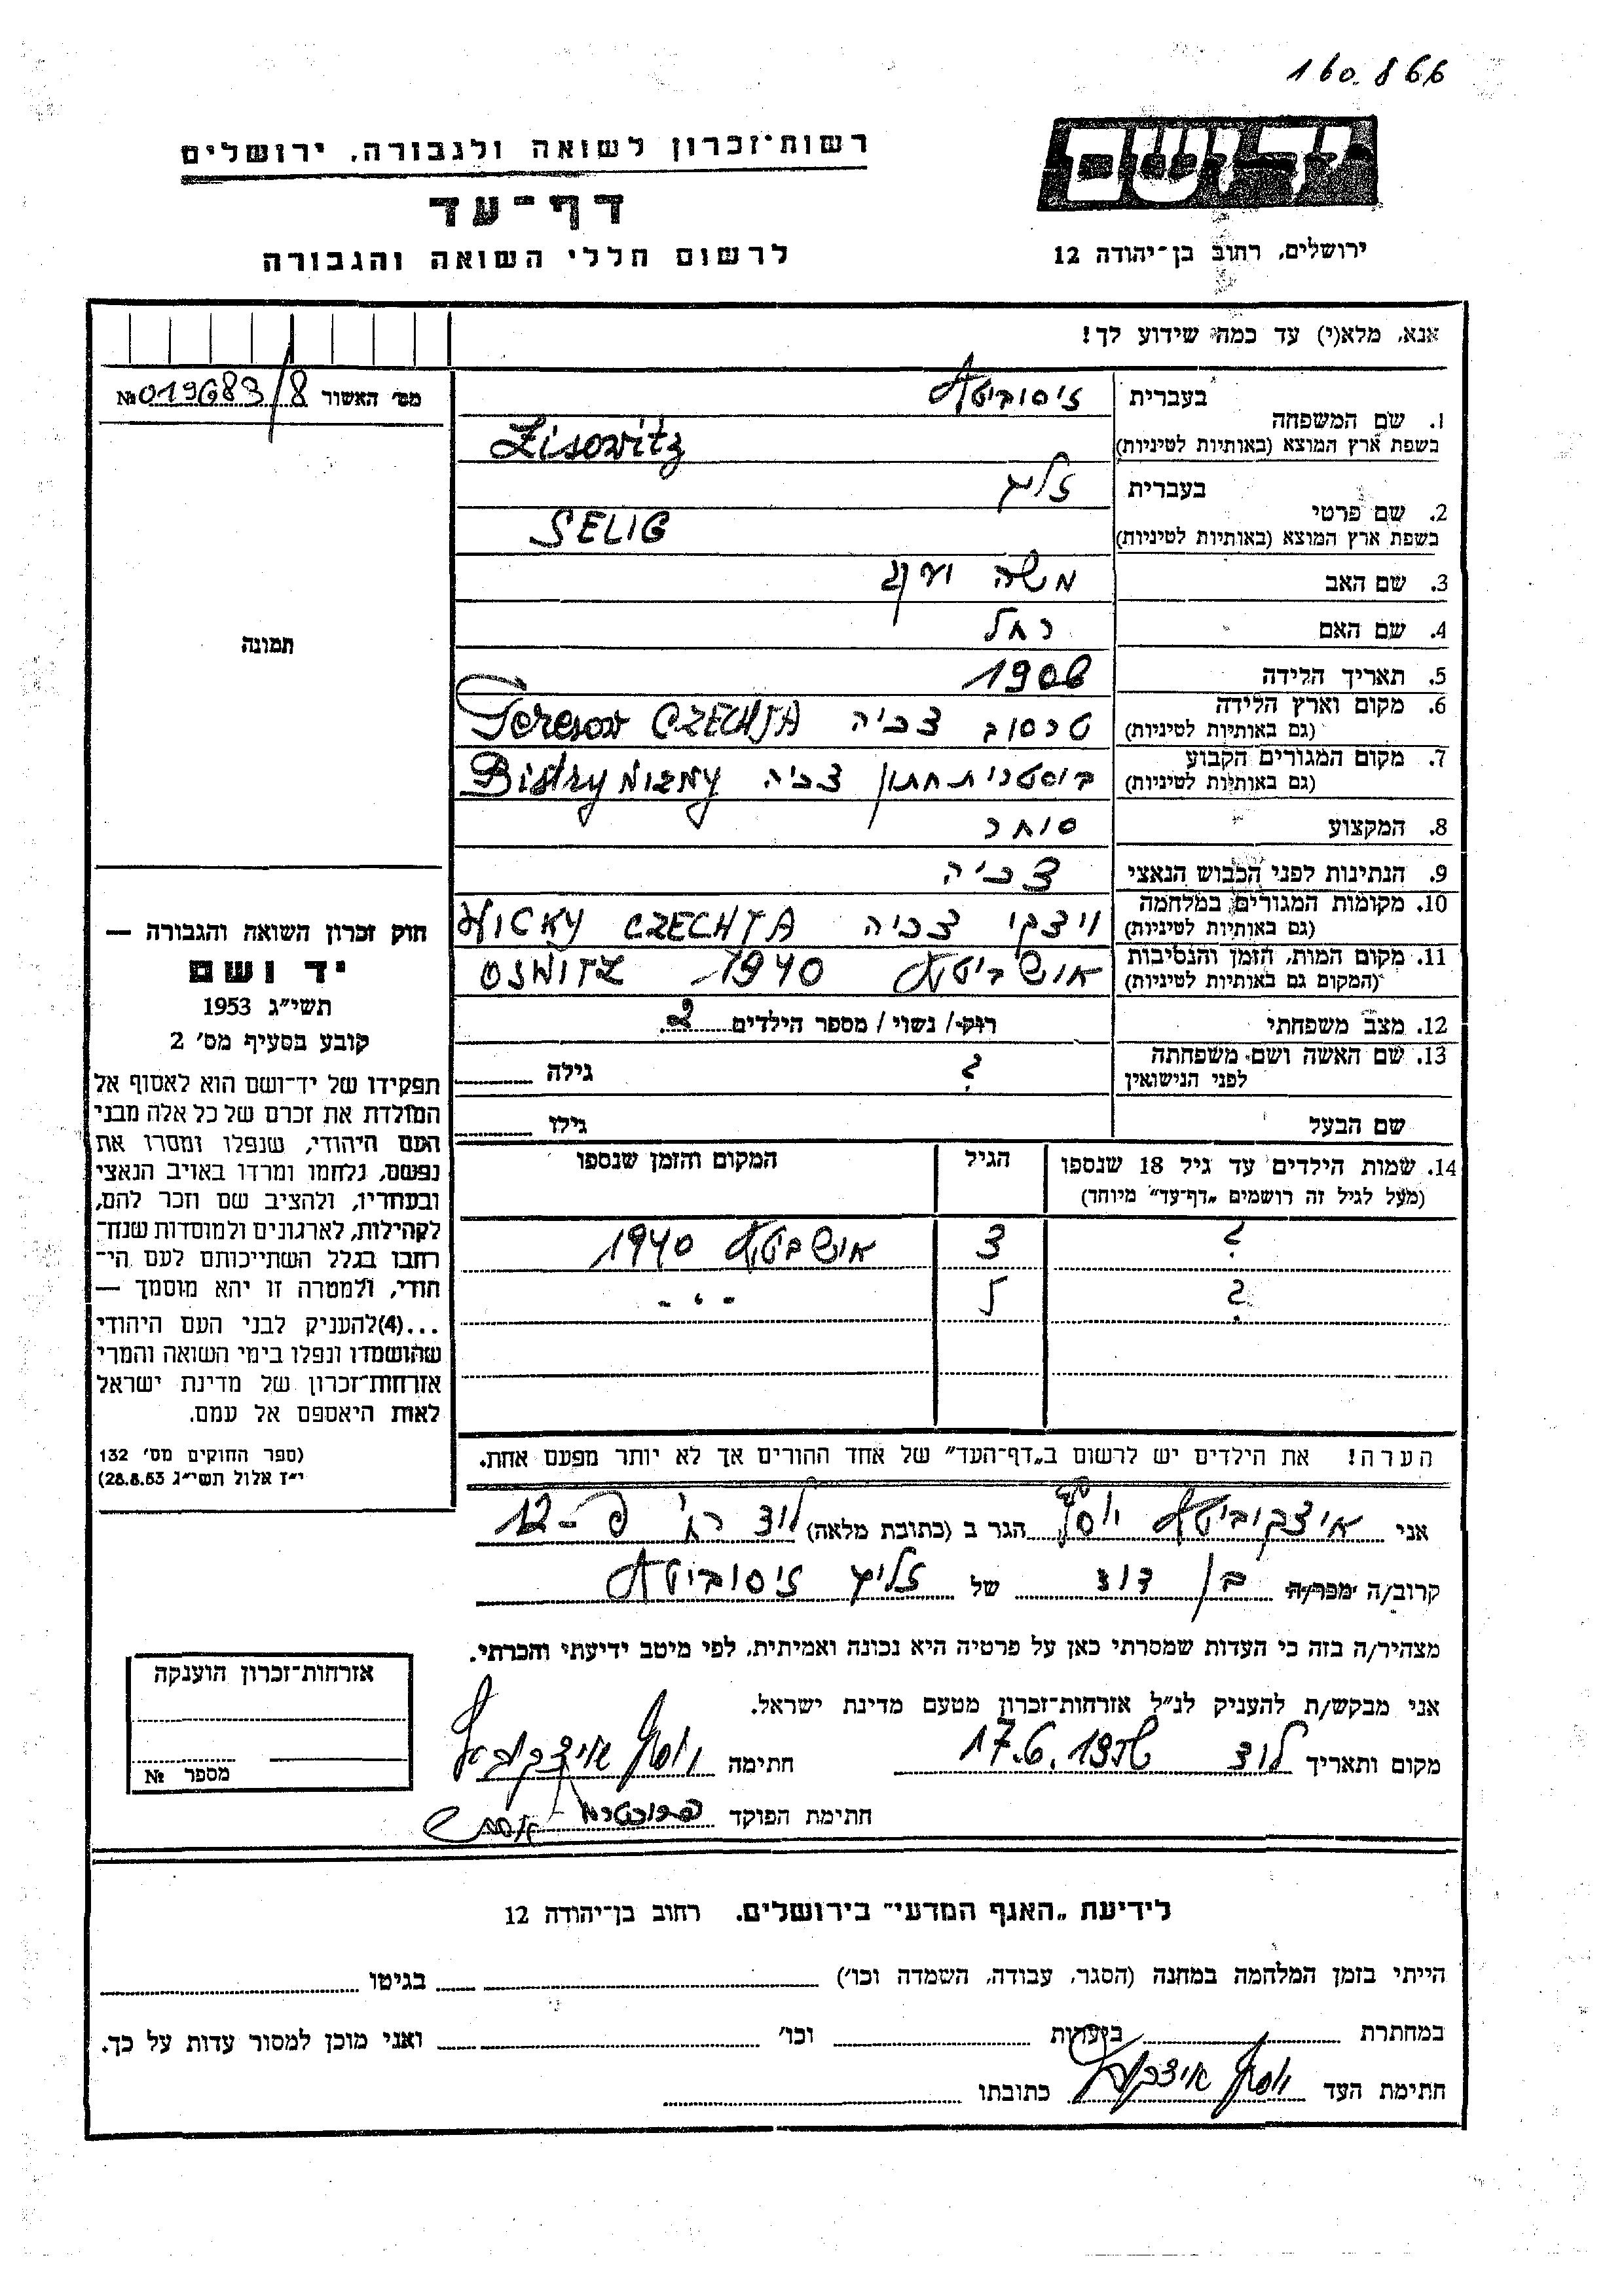 160.866
יד ושם
רשות־זכרון לשואה ולגבורה, ירושלים
דף־עד
לרשום חללי השואה והגבורה
ירושלים, רחוב בן־יהודה 12
אנא, מלא(י) עד כמה שידוע לך!
מס׳ האשור 019683/8 №
תמונה
1. שם המשפחה
בעברית זיסוביטש
בשפת ארץ המוצא (באותיות לטיניות) Zisowitz
2. שם פרטי
בעברית זליג
בשפת ארץ המוצא (באותיות לטיניות) SELIG
3. שם האב משה יעקב
4. שם האם רחל
5. תאריך הלידה 1908
6. מקום וארץ הלידה טרסוב צכיה CZECHJA Teresov
(גם באותיות לטיניות)
7. מקום המגורים הקבוע צכיה Bistry
(גם באותיות לטיניות)
8. המקצוע סוחר
9. הנתינות לפני הכבוש הנאצי צכיה
10. מקומות המגורים במלחמה ויצקי צכיה CZECHJA WICKY
(גם באותיות לטיניות)
11. מקום המות, הזמן והנסיבות אושביטש 1940 OSWITZ
(המקום גם באותיות לטיניות)
12. מצב משפחתי רוק / נשוי / מספר הילדים 2
13. שם האשה ושם משפחתה ? גילה
לפני הנישואין
שם הבעל גילו
14. שמות הילדים עד גיל 18 שנספו הגיל המקום והזמן שנספו
(מעל לגיל זה רושמים „דף־עד״ מיוחד)
? 3 אושביטש 1940
? - " -
הערה! את הילדים יש לרשום ב„דף־העד״ של אחד ההורים אך לא יותר מפעם אחת.
חוק זכרון השואה והגבורה —
יד ושם
תשי״ג 1953
קובע בסעיף מס׳ 2
תפקידו של יד־ושם הוא לאסוף אל
המולדת את זכרם של כל אלה מבני
העם היהודי, שנפלו ומסרו את
נפשם, נלחמו ומרדו באויב הנאצי
ובעוזריו, ולהציב שם וזכר להם,
לקהילות, לארגונים ולמוסדות שנח־
רבו בגלל השתייכותם לעם הי־
הודי, ולמטרה זו יהא מוסמך —
...(4)להעניק לבני העם היהודי
שהושמדו ונפלו בימי השואה והמרי
אזרחות־זכרון של מדינת ישראל
לאות היאספם אל עמם.
(ספר החוקים מס׳ 132
י״ז אלול תשי״ג 28.8.53)
אני איצקוביטש יוסף הגר ב (כתובת מלאה) לוד
קרוב/ה מכר/ה בן דוד של זליג זיסוביטש
מצהיר/ה בזה כי העדות שמסרתי כאן על פרטיה היא נכונה ואמיתית, לפי מיטב ידיעתי והכרתי.
אני מבקש/ת להעניק לנ״ל אזרחות־זכרון מטעם מדינת ישראל.
מקום ותאריך לוד חתימה יוסף איצקוביטש
חתימת הפוקד
אזרחות־זכרון הוענקה
מספר №
לידיעת „האגף המדעי״ בירושלים, רחוב בן־יהודה 12
הייתי בזמן המלחמה במחנה (הסגר, עבודה, השמדה וכו׳) בגיטו
במחתרת ביערות וכו׳ ואני מוכן למסור עדות על כך.
חתימת העד יוסף איצקוביטש כתובתו